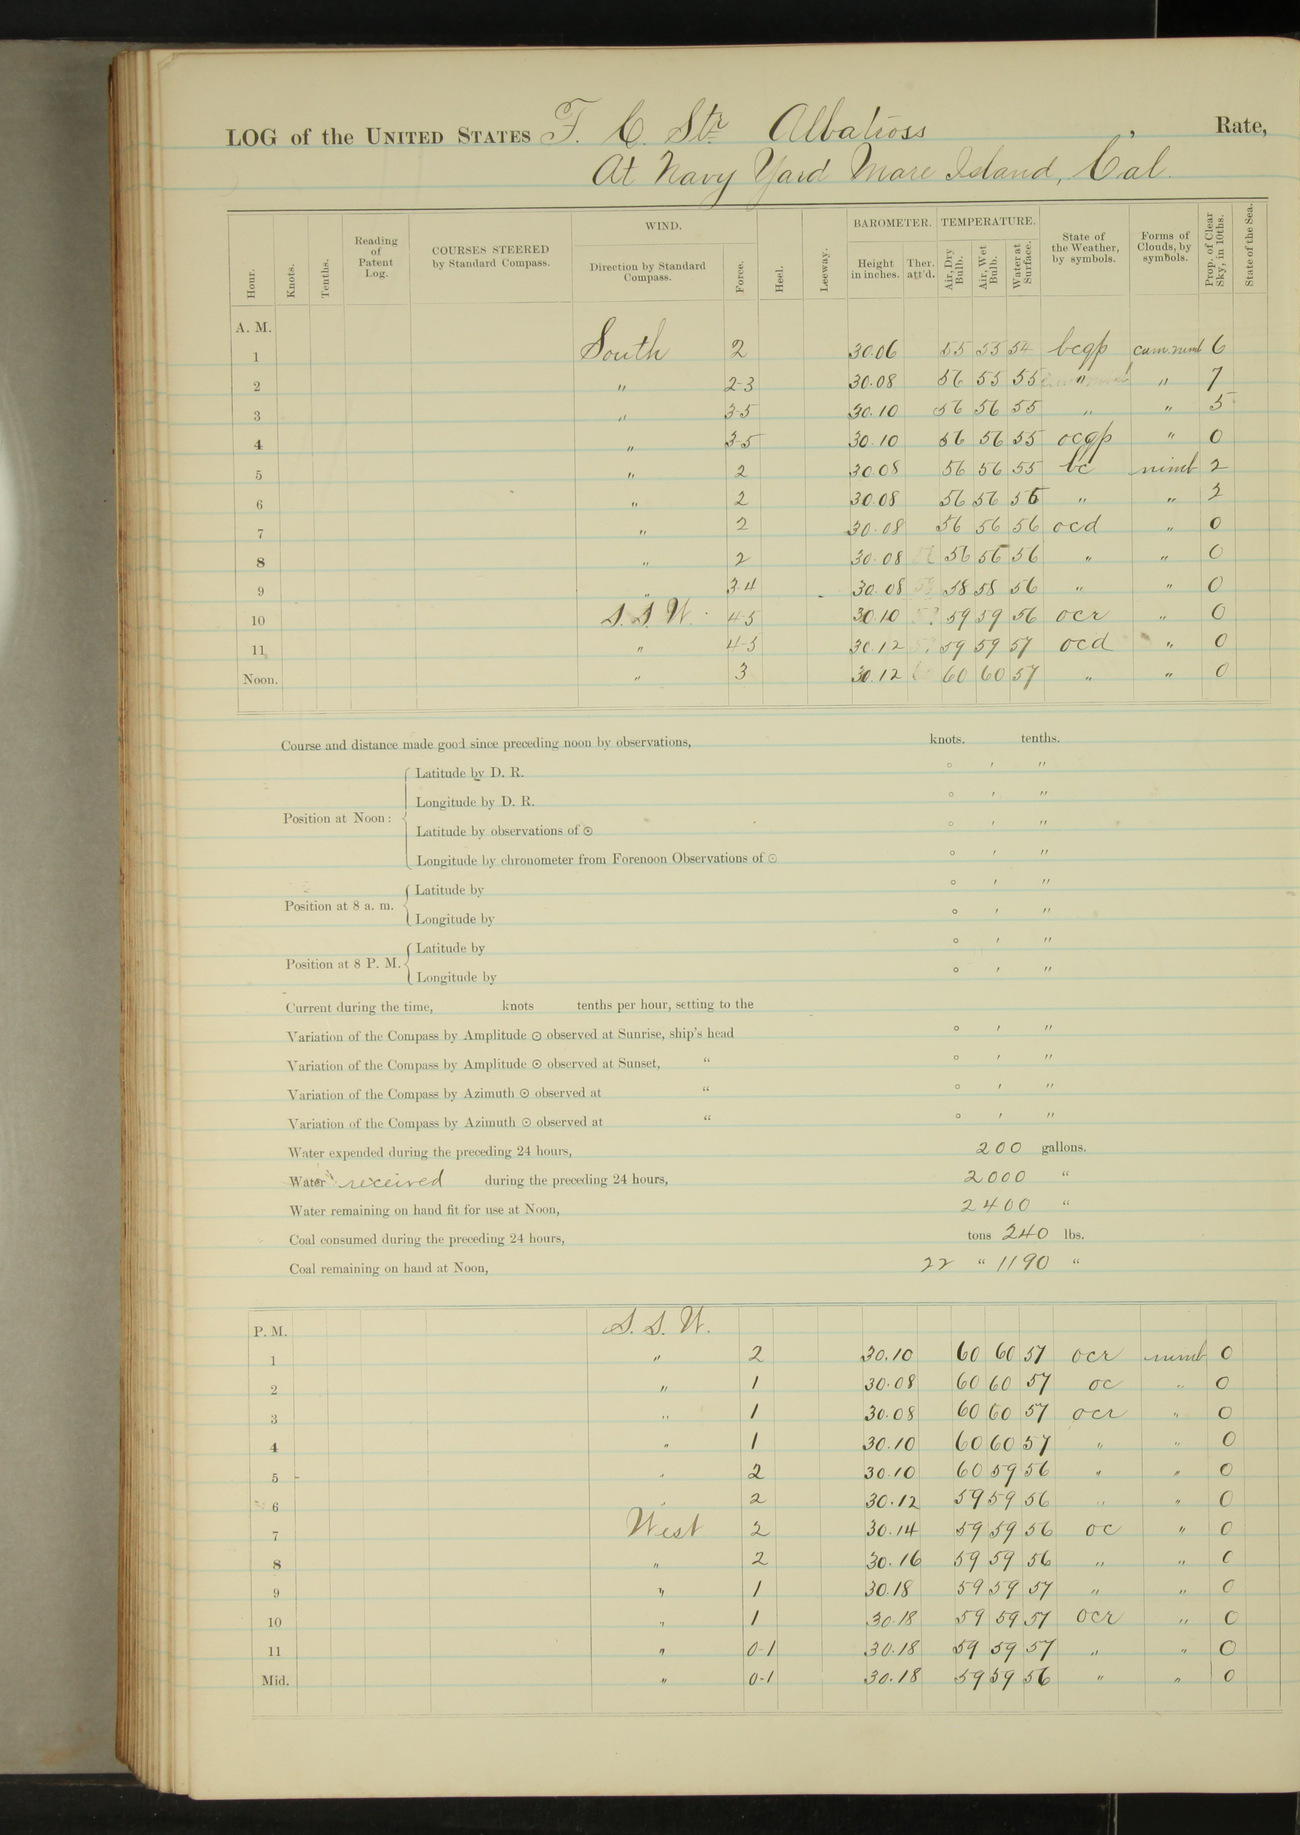 LOG of the UNITED STATES F. C. Str. Albatross , Rate,
At Navy Yard Mare Island, Cal.
Hour. Knots. Tenths. Reading of Patent Log. COURSES STEERED by Standard Compass. WIND. Direction by Standard Compass. Force. Heel. Leeway. BAROMETER. Height in inches. Ther. att'd. TEMPERATURE. Air, Dry Bulb. Air, Wet Bulb. Water at Surface. State of the Weather, by symbols. Forms of Clouds, by symbols. Prop. of Clear Sky, in 10ths. State of the Sea.
A. M.
1 South 2 30.06 55 55 54 bcqp cum. nimb 6
2 " 2-3 30.08 56 55 55 " " 7
3 " 3-5 30.10 56 56 55 " " 5
4 " 3-5 30.10 56 56 55 ocqp " 0
5 " 2 30.08 56 56 55 bc nimb 2
6 " 2 30.08 56 56 56 " " 2
7 " 2 30.08 56 56 56 ocd " 0
8 " 2 30.08 56 56 56 " " 0
9 " 3.4 30.08 58 58 56 " " 0
10 S. S. W. 4-5 30.10 59 59 56 ocr " 0
11 " 4-5 30.12 59 59 57 ocd " 0
Noon. " 3 30.12 60 60 57 " " 0
Course and distance made good since preceding noon by observations, knots. tenths.
Position at Noon: Latitude by D. R. ° ′ ″
Longitude by D. R. ° ′ ″
Latitude by observations of ⊙ ° ′ ″
Longitude by chronometer from Forenoon Observations of ⊙ ° ′ ″
Position at 8 a. m. Latitude by ° ′ ″
Longitude by ° ′ ″
Position at 8 P. M. Latitude by ° ′ ″
Longitude by ° ′ ″
Current during the time, knots tenths per hour, setting to the
Variation of the Compass by Amplitude ⊙ observed at Sunrise, ship's head ° ′ ″
Variation of the Compass by Amplitude ⊙ observed at Sunset, " ° ′ ″
Variation of the Compass by Azimuth ⊙ observed at " ° ′ ″
Variation of the Compass by Azimuth ⊙ observed at " ° ′ ″
Water expended during the preceding 24 hours, 200 gallons.
Water received during the preceding 24 hours, 2000 "
Water remaining on hand fit for use at Noon, 2400 "
Coal consumed during the preceding 24 hours, tons 240 lbs.
Coal remaining on hand at Noon, 22 " 1190 "
P. M. S. S. W.
1 " 2 30.10 60 60 57 ocr nimb 0
2 " 1 30.08 60 60 57 oc " 0
3 " 1 30.08 60 60 57 ocr " 0
4 " 1 30.10 60 60 57 " " 0
5 " 2 30.10 60 59 56 " " 0
6 " 2 30.12 59 59 56 " " 0
7 West 2 30.14 59 59 56 oc " 0
8 " 2 30.16 59 59 56 " " 0
9 " 1 30.18 59 59 57 " " 0
10 " 1 30.18 59 59 57 ocr " 0
11 " 0-1 30.18 59 59 57 " " 0
Mid. " 0-1 30.18 59 59 56 " " 0